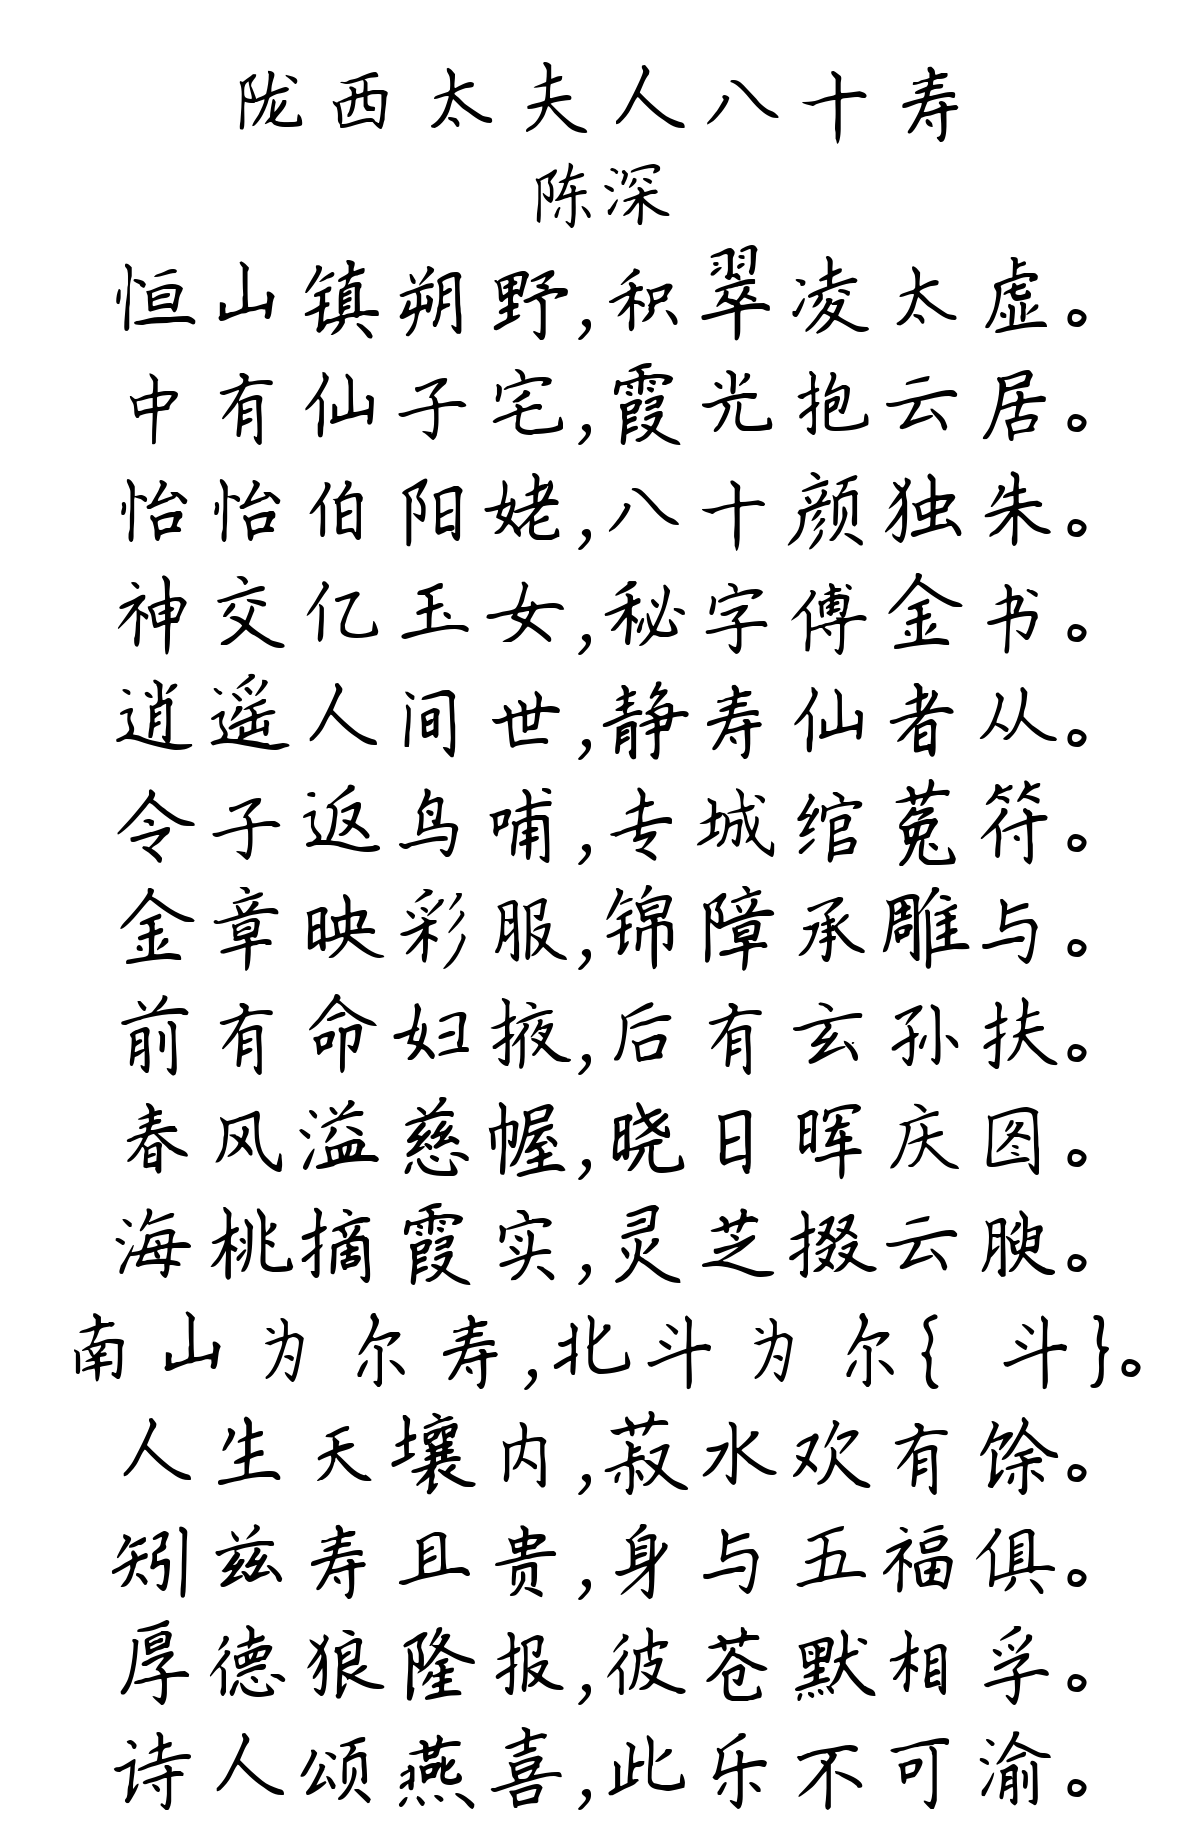 陇西太夫人八十寿
陈深
恒山镇朔野,积翠凌太虚。
中有仙子宅,霞光抱云居。
怡怡伯阳姥,八十颜独朱。
神交亿玉女,秘字傅金书。
逍遥人间世,静寿仙者从。
令子返鸟哺,专城绾菟符。
金章映彩服,锦障承雕与。
前有命妇掖,后有玄孙扶。
春风溢慈幄,晓日晖庆图。
海桃摘霞实,灵芝掇云腴。
南山为尔寿,北斗为尔{ 斗}。
人生天壤内,菽水欢有馀。
矧兹寿且贵,身与五福俱。
厚德狼隆报,彼苍默相孚。
诗人颂燕喜,此乐不可渝。